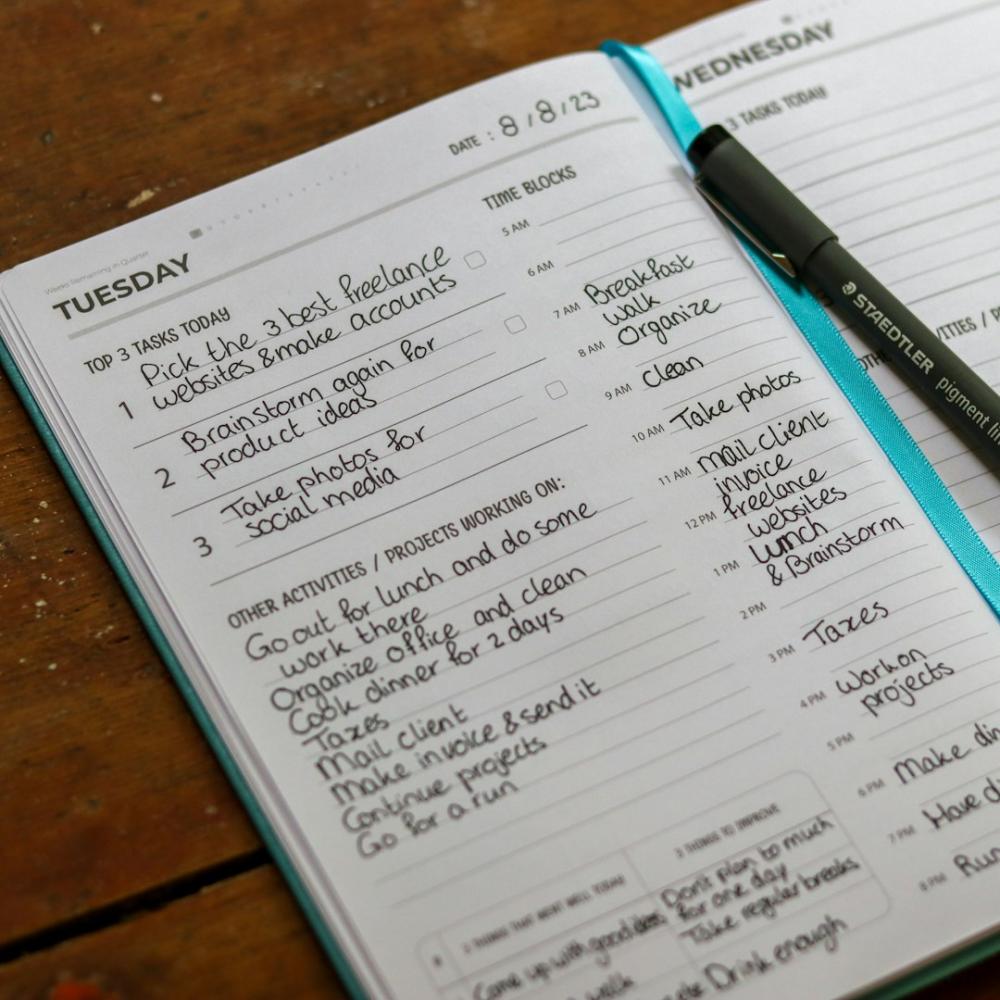 Weeks Remaining in Quarter
TUESDAY
DATE : 8 / 8 / 23
TOP 3 TASKS TODAY
1 Pick the 3 best freelance
websites & make accounts
2 Brainstorm again for
product ideas
3 Take photos for
social media
OTHER ACTIVITIES / PROJECTS WORKING ON:
Go out for lunch and do some
work there
Organize office and clean
Cook dinner for 2 days
Taxes
Mail client
Make invoice & send it
Continue projects
Go for a run
TIME BLOCKS
5 AM
6 AM
7 AM Breakfast
walk
8 AM Organize
9 AM Clean
10 AM Take photos
11 AM mail client
invoice
12 PM freelance
websites
1 PM lunch
& Brainstorm
2 PM
3 PM Taxes
4 PM Work on
projects
5 PM
6 PM Make din
7 PM Have di
8 PM Run
3 THINGS THAT WENT WELL TODAY
Came up with good ideas
walk
3 THINGS TO IMPROVE
Don't plan to much
for one day
Take regular breaks
Drink enough
WEDNESDAY
3 TASKS TODAY
VITIES / P
OTH
STAEDTLER pigment lin